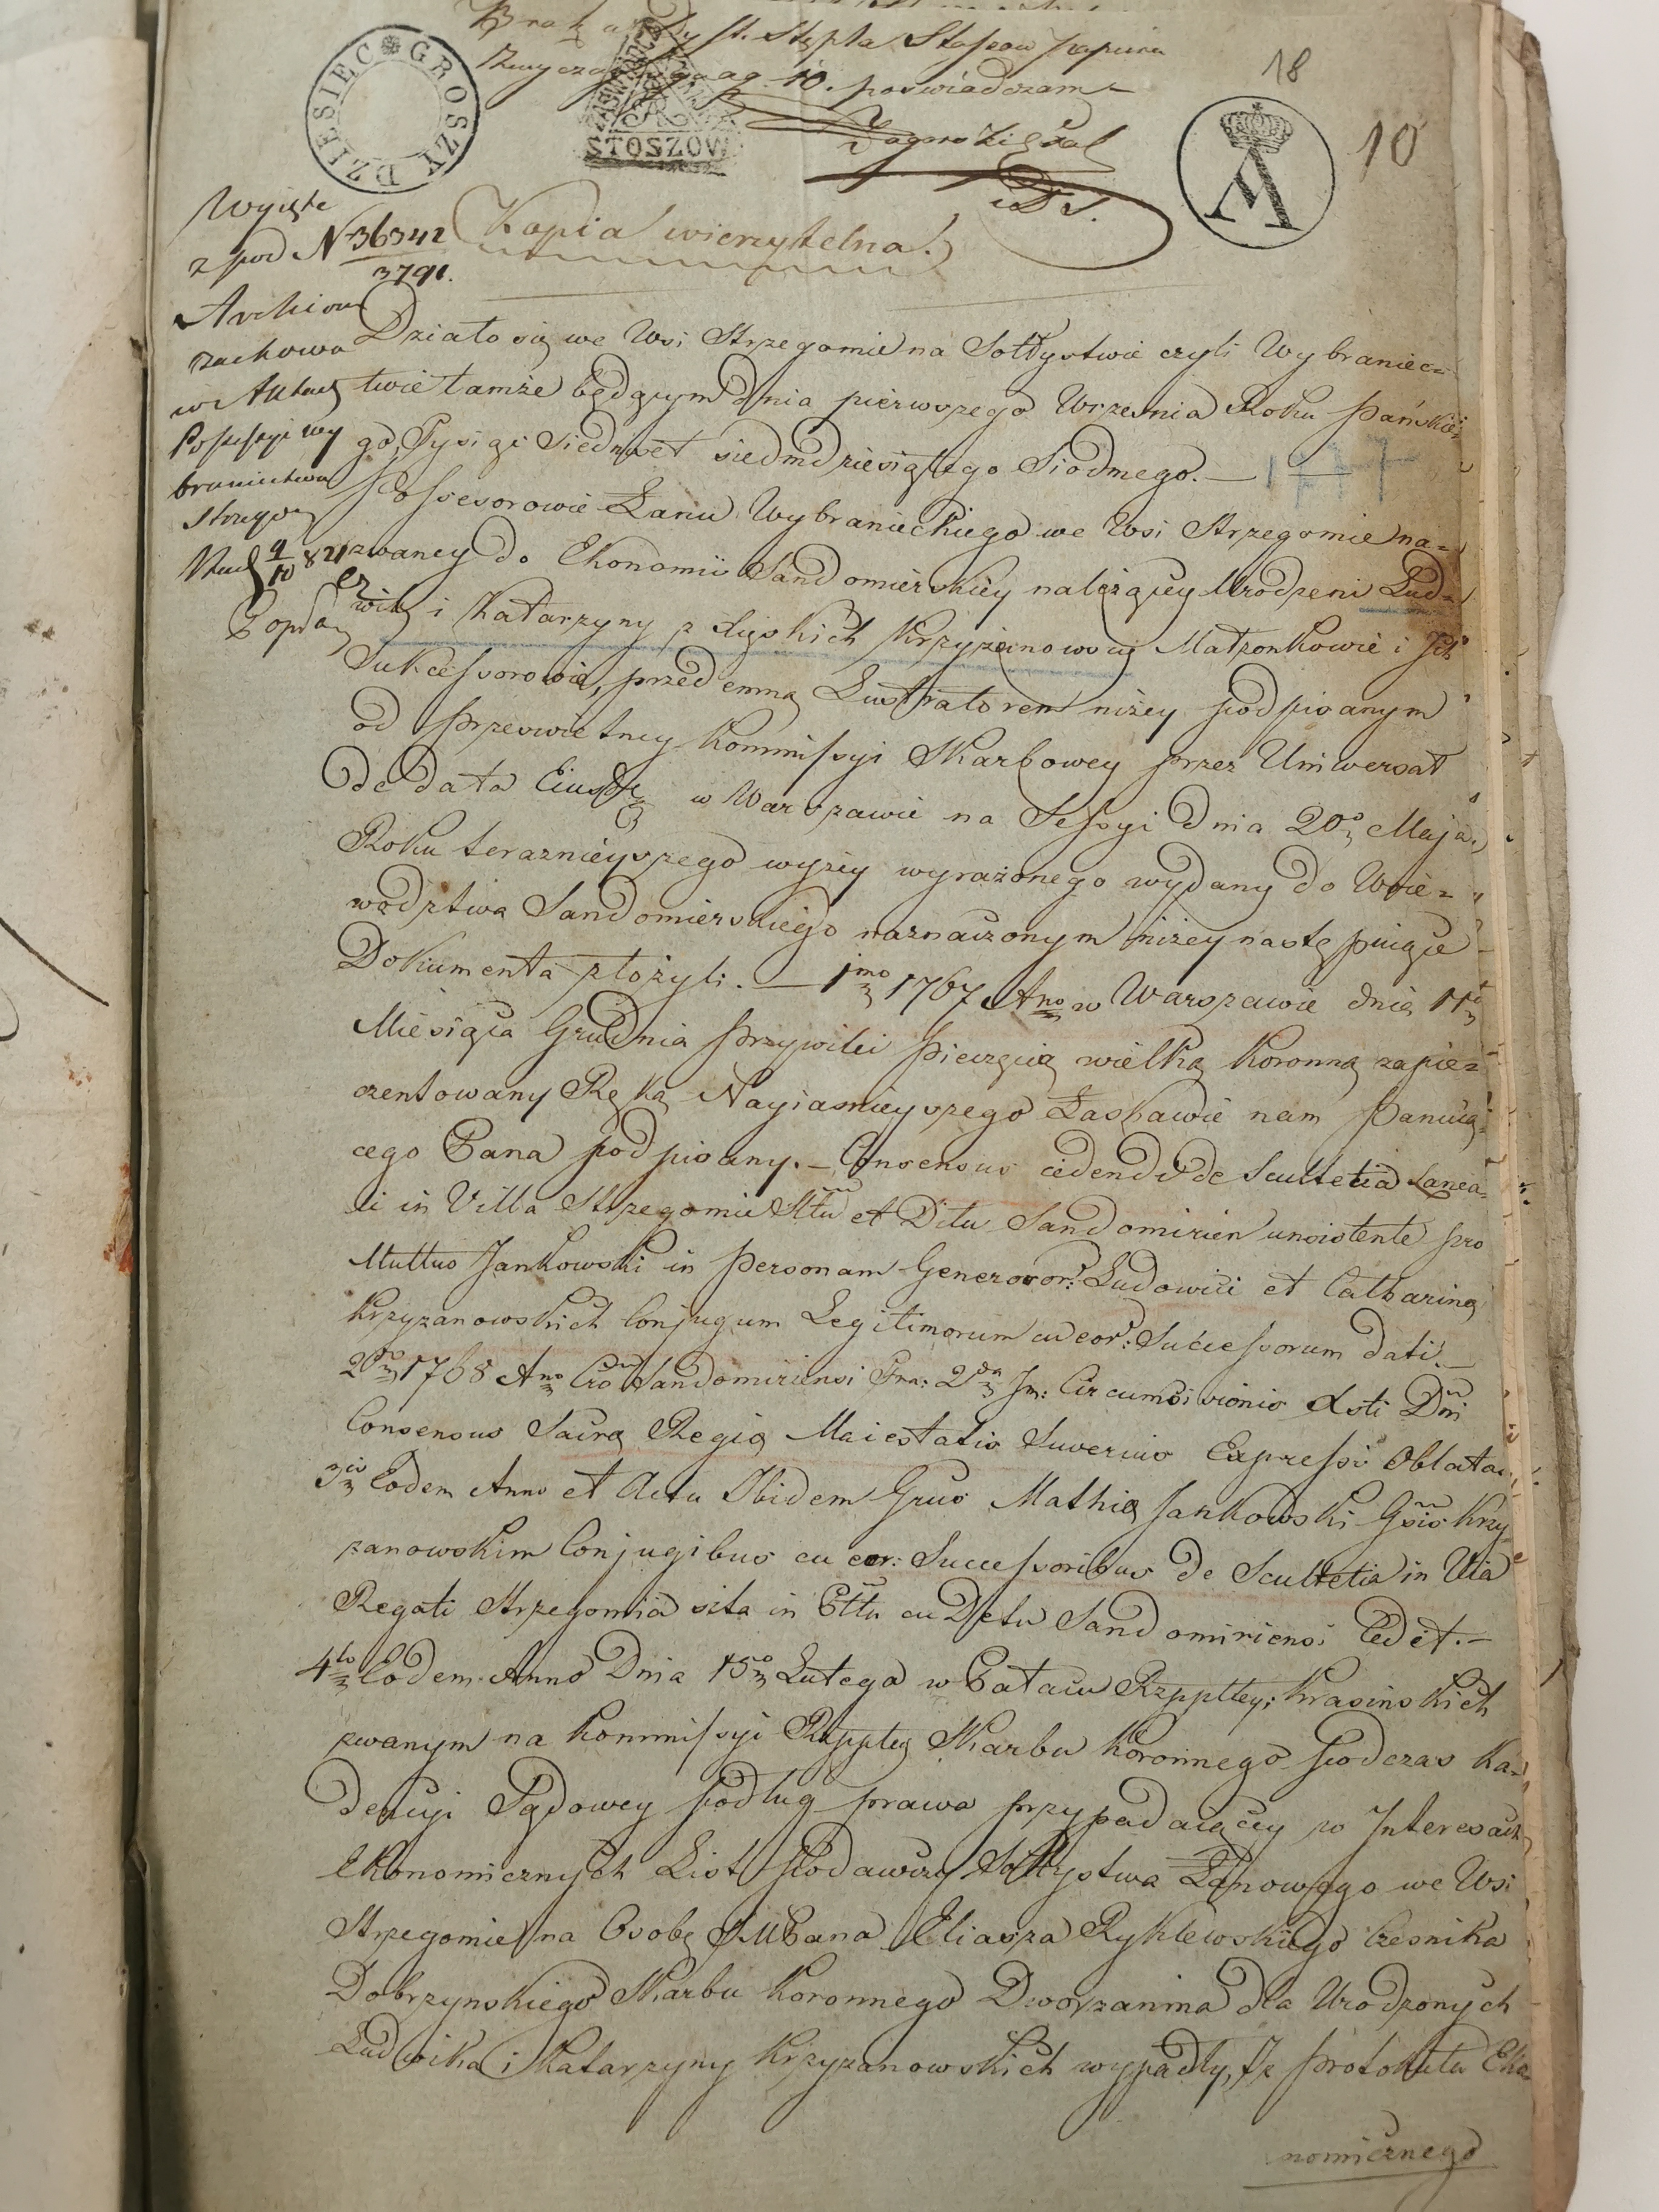 Brak arkuszy st. Stępla Stosow papieru
zwyczaynego ag 10. poświadczam
18
10
DZIESIEC GROSZY
STOSZOW
DS.
Wyięte
z pod N 36342
3791.
Archiow
zachowa
w Aktach
Possessyi wy
braniectwa
Strzegom
9/10 821
Kopia wierzytelna.
Działo się we Wsi Strzegomie na Sołtystwie czyli Wybraniec=
twie tamże będącym dnia pierwszego Wrzesnia Roku Pańskie
go Tysiąc Siedmset siedmdziesiątego Siodmego. —
Possesorowie Łanu Wybranieckiego we Wsi Strzegomie na=
zwaney do Ekonomii Sandomierskiey należącey Urodzeni Lud=
wik i Katarzyny z Ligskich Krzyżanowscy Małzonkowie i Ich
Sukcessorowie, przedemną Lustratorem niżey podpisanym
od Przeswietney Kommissyi Skarbowey przez Uniwersał
de data Eiusd w Warszawie na Sessyi dnia 20o Maja
Roku teraznieyszego wyżey wyrażonego wydany do Woie=
wodztwa Sandomierskiego naznaczonym niżey następuiące
Dokumenta złożyli. — 1mo 1767 Ano w Warszawie dnia 11o
Miesiąca Grudnia Przywiley Pieczęcią wielką Koronną zapie=
czentowany Ręką Nayiasnieyszego Łaskawie nam Panuią
cego Pana podpisany. — Consensus cedendi de Scultetia Lanea=
li in Villa Strzegomie Sttu et Dttu Sandomirien consistente pro
Mattus Jankowski in Personam Generosor: Ludowici et Catharina
Krzyzanowskich Conjugum Legitimorum cu eor: Successorum dati. —
2do 1768 Ano Cro Sandomiriensi Fra: 2da In: Circumcisionis Xsti Dni
Consensus Sacra Regia Maiestatis Superius Expressi Oblata.
3io Eodem Anno et Actu Ibidem Grus Mathia Jankowski Gsis Krzy
zanowskim Conjugibus cu eor: Successoribus de Scultetia in Vla
Regali Strzegomia sita in Pttu cu Dctu Sandomiriensi Cedit. —
4to Eodem Anno Dnia 15o Lutego w Pałacu Rzpptey: Krasinskich
zwanym na Kommissyi Rzpptey Skarbu Koronnego podczas Ka=
dencyi Sądowey podług prawa przypadaiącey w Interesach
Ekonomicznych List Podawczy Sołtystwa Łanowego we Wsi
Strzegomie na Osobę JMPana Eliasza Ryklewskiego Czesnika
Dobrzynskiego Skarbu Koronnego Dworzanina dla Urodzonych
Ludwika i Katarzyny Krzyzanowskich wypadły, z Protokułu Eko
nomicznego